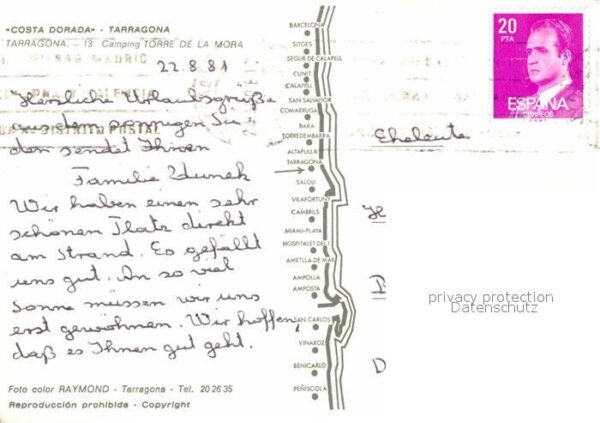 «COSTA DORADA» - TARRAGONA
TARRAGONA. - 13 Camping TORRE DE LA MORA
22.8.81
Herzliche Urlaubsgrüße
aus dem sonnigen Sü
den sendet Ihnen
Familie
Wir haben einen sehr
schönen Platz direkt
am Strand. Es gefällt
uns gut. An so viel
Sonne müssen wir uns
erst gewöhnen. Wir hoffen,
daß es Ihnen gut geht.
Foto color RAYMOND - Tarragona - Tel. 20 26 35
Reproducción prohibida - Copyright
BARCELONA
SITGES
SEGUR DE CALAFELL
CUNIT
CALAFELL
SAN SALVADOR
COMARRUGA
BARA
TORREDEMBARRA
ALTAFULLA
TARRAGONA
SALOU
VILAFORTUNY
CAMBRILS
MIAMI-PLAYA
HOSPITALET DEL I.
AMETLLA DE MAR
AMPOLLA
AMPOSTA
SAN CARLOS
VINAROZ
BENICARLO
PEÑISCOLA
20
PTA
ESPAÑA
CORREOS
Eheleute
H
P
D
privacy protection
Datenschutz